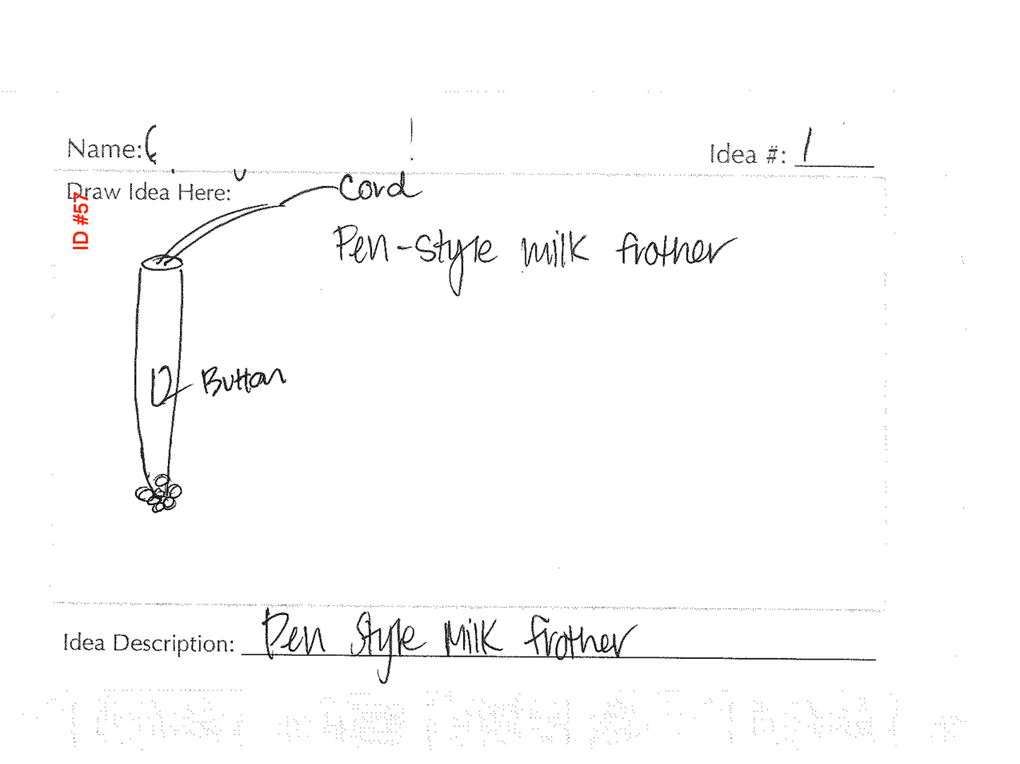 Name:
Idea #: 1
Draw Idea Here:
ID #57
Cord
Pen-style milk frother
Button
Idea Description: Pen Style Milk frother